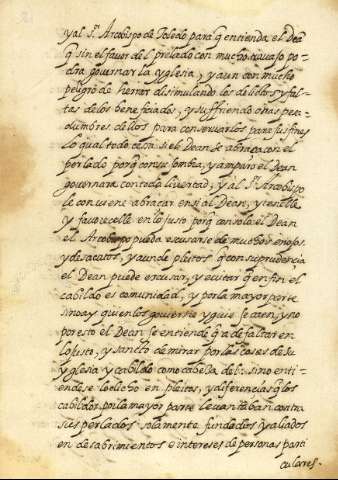 y al S.r Arcobispo de Toledo para q entienda el Dea
q sin el favor del prelado con mucho travajo po-
dra governar la yglesia, y aun con mucho
peligro de herrar disimulando los delictos y fal-
tas de los beneficiados, y suffriendo otras pesa-
dumbres dellos para conservarlos para sus fines
lo qual todo cesa si el Dean se abraca con el
perlado porq con su sombra, y amparo el Dean
governara con toda livertad, y al S.r Arcobispo
le conviene abracar en si al Dean, y tenelle
y favorecelle en lo justo porq con solo el Dean
el Arcobispo pueda escusarse de muchos enojos
y desacatos, y aun de pleitos q con su prudencia
el Dean puede escusar, y evitar q en fin el
cabildo es comunidad, y por la mayor parte
sino ay quien los govierne y guie se caen, y no
por esto el Dean se entiende q a de faltar en
lo justo, y sancto de mirar por las cosas de su
yglesia y cabildo como cabeza del sino enti-
endese lo dicho en pleitos, y diferencias q los
cabildos por la mayor parte levantaban contra
sus perlados solamente fundados y aliados
en desabrimientos e intereses de personas parti
culares.